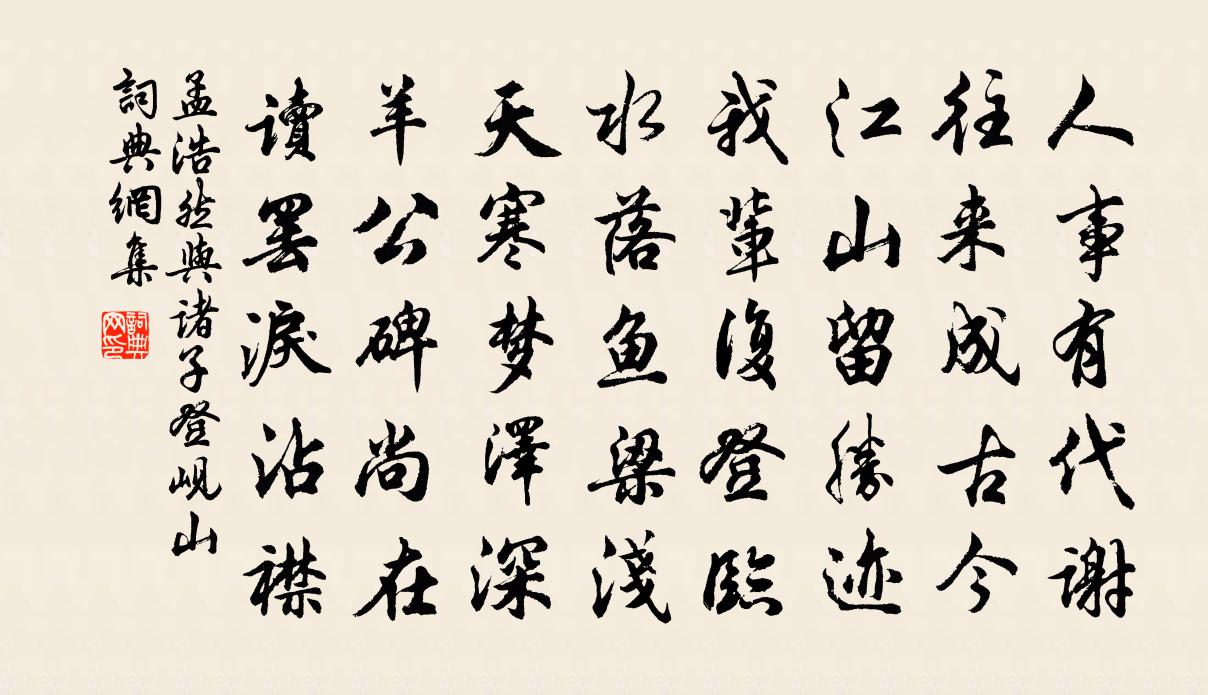 人事有代谢
往来成古今
江山留勝迹
我輩復登臨
水落鱼梁淺
天寒梦澤深
羊公碑尚在
讀罢淚沾襟
孟浩然與诸子登岘山
詞典網集
詞典网印